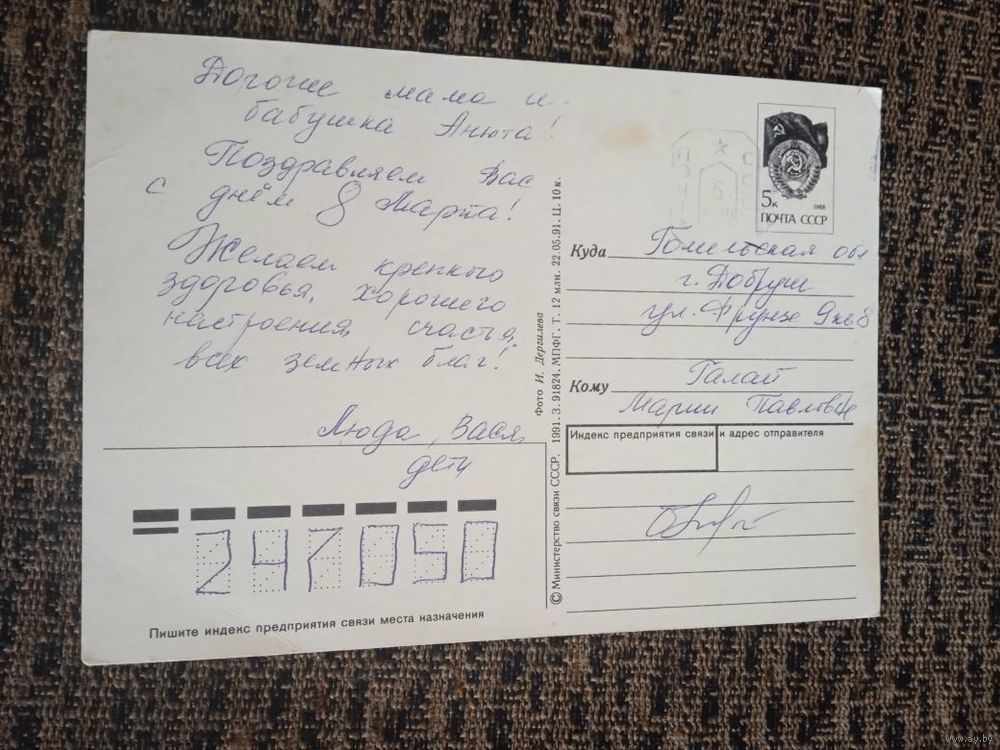 Дорогие мама и
бабушка Анюта!
Поздравляем Вас
с днём 8 Марта!
Желаем крепкого
здоровья, хорошего
настроения, счастья,
всех земных благ!
Люда, Вася,
дети
247050
Пишите индекс предприятия связи места назначения
© Министерство связи СССР, 1991. З. 91824. МПФГ. Т. 12 млн. 22.05.91. Ц. 10 к.
Фото И. Дергилева
ПОЧТА
СССР
5
5к
1988
ПОЧТА СССР
Куда Гомельская обл
г. Добруш
ул. Фрунзе 9 кв 8
Кому Галай
Марии Павловне
Индекс предприятия связи и адрес отправителя
www.ay.by